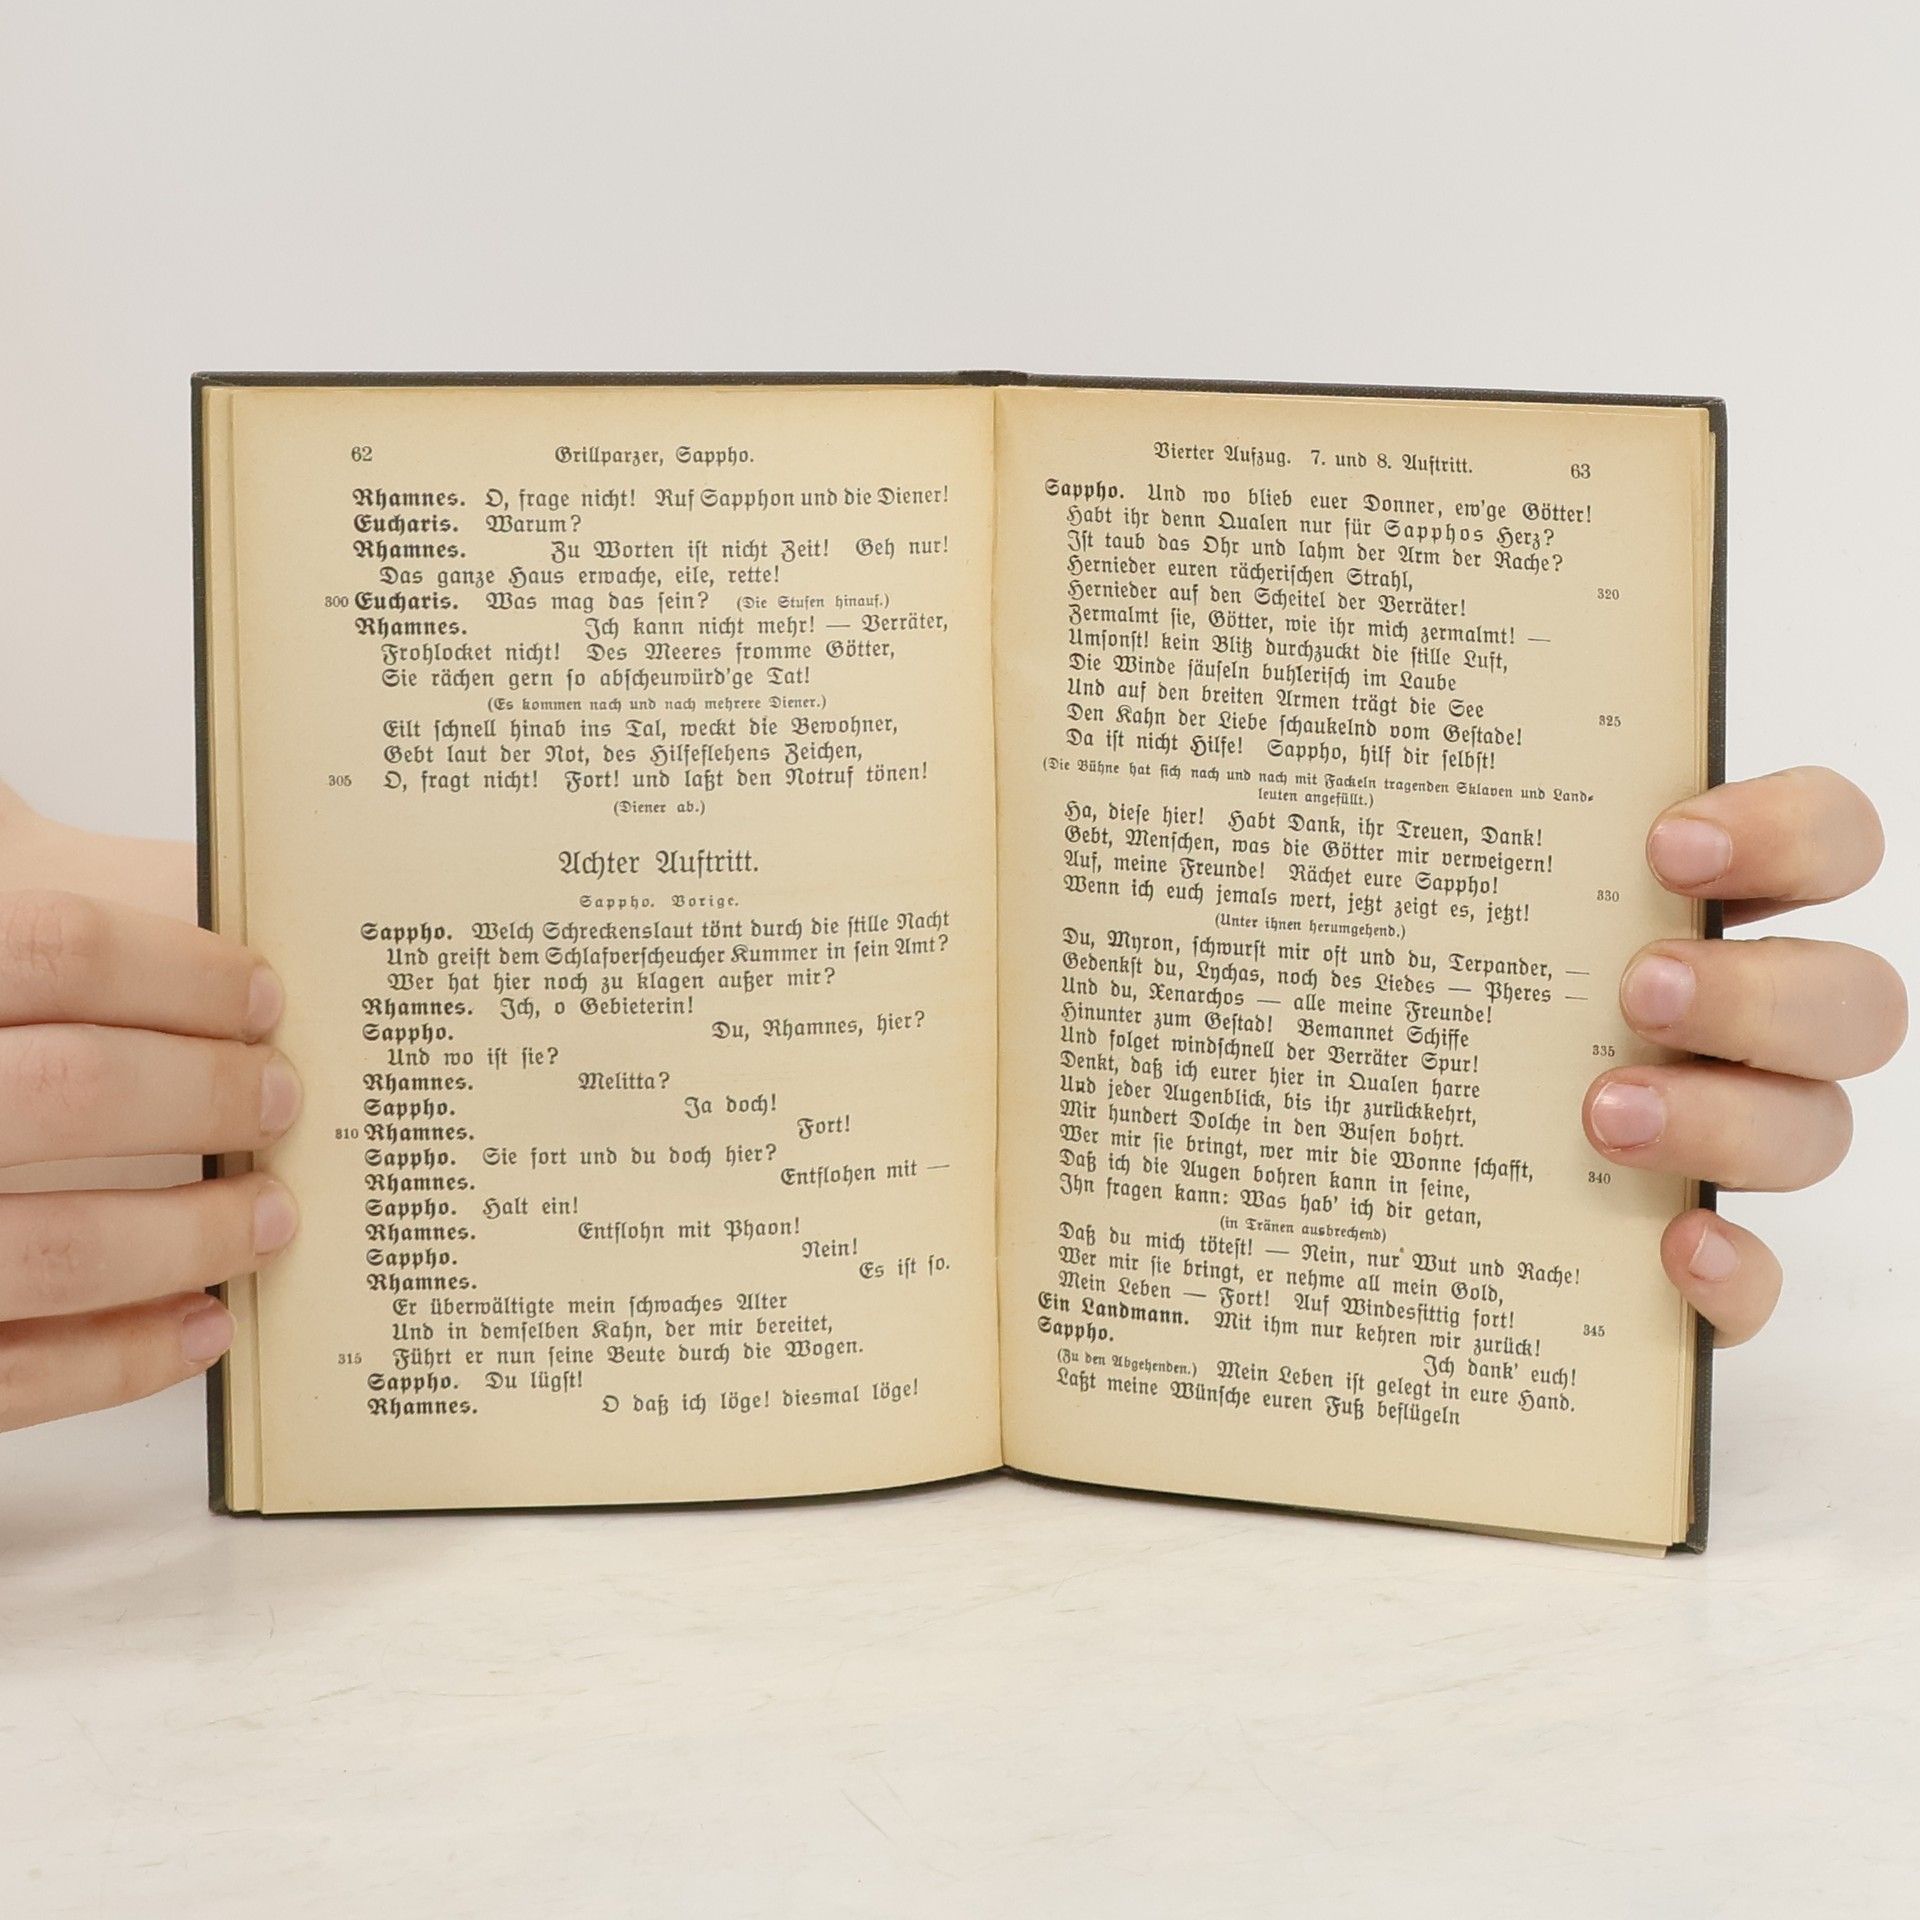 62
Grillparzer, Sappho.
Rhamnes. O, frage nicht! Ruf Sapphon und die Diener!
Eucharis. Warum?
Rhamnes. Zu Worten ist nicht Zeit! Geh nur!
Das ganze Haus erwache, eile, rette!
300 Eucharis. Was mag das sein? (Die Stufen hinauf.)
Rhamnes. Ich kann nicht mehr! — Verräter,
Frohlocket nicht! Des Meeres fromme Götter,
Sie rächen gern so abscheuwürd'ge Tat!
(Es kommen nach und nach mehrere Diener.)
Eilt schnell hinab ins Tal, weckt die Bewohner,
Gebt laut der Not, des Hilfeflehens Zeichen,
305 O, fragt nicht! Fort! und laßt den Notruf tönen!
(Diener ab.)
Achter Auftritt.
Sappho. Vorige.
Sappho. Welch Schreckenslaut tönt durch die stille Nacht
Und greift dem Schlafverscheucher Kummer in sein Amt?
Wer hat hier noch zu klagen außer mir?
Rhamnes. Ich, o Gebieterin!
Sappho. Du, Rhamnes, hier?
Und wo ist sie?
Rhamnes. Melitta?
Sappho. Ja doch!
310 Rhamnes. Fort!
Sappho. Sie fort und du doch hier?
Rhamnes. Entflohen mit —
Sappho. Halt ein!
Rhamnes. Entflohn mit Phaon!
Sappho. Nein!
Rhamnes. Es ist so.
Er überwältigte mein schwaches Alter
Und in demselben Kahn, der mir bereitet,
315 Führt er nun seine Beute durch die Wogen.
Sappho. Du lügst!
Rhamnes. O daß ich löge! diesmal löge!
Vierter Aufzug. 7. und 8. Auftritt.
63
Sappho. Und wo blieb euer Donner, ew'ge Götter!
Habt ihr denn Qualen nur für Sapphos Herz?
Ist taub das Ohr und lahm der Arm der Rache?
Hernieder euren rächerischen Strahl,
Hernieder auf den Scheitel der Verräter! 320
Zermalmt sie, Götter, wie ihr mich zermalmt! —
Umsonst! kein Blitz durchzuckt die stille Luft,
Die Winde säuseln buhlerisch im Laube
Und auf den breiten Armen trägt die See
Den Kahn der Liebe schaukelnd vom Gestade! 325
Da ist nicht Hilfe! Sappho, hilf dir selbst!
(Die Bühne hat sich nach und nach mit Fackeln tragenden Sklaven und Land-
leuten angefüllt.)
Ha, diese hier! Habt Dank, ihr Treuen, Dank!
Gebt, Menschen, was die Götter mir verweigern!
Auf, meine Freunde! Rächet eure Sappho!
Wenn ich euch jemals wert, jetzt zeigt es, jetzt! 330
(Unter ihnen herumgehend.)
Du, Myron, schwurst mir oft und du, Terpander, —
Gedenkst du, Lychas, noch des Liedes — Pheres —
Und du, Xenarchos — alle meine Freunde!
Hinunter zum Gestad! Bemannet Schiffe
Und folget windschnell der Verräter Spur! 335
Denkt, daß ich eurer hier in Qualen harre
Und jeder Augenblick, bis ihr zurückkehrt,
Mir hundert Dolche in den Busen bohrt.
Wer mir sie bringt, wer mir die Wonne schafft,
Daß ich die Augen bohren kann in seine, 340
Ihn fragen kann: Was hab' ich dir getan,
(in Tränen ausbrechend)
Daß du mich tötest! — Nein, nur Wut und Rache!
Wer mir sie bringt, er nehme all mein Gold,
Mein Leben — Fort! Auf Windesfittig fort!
Ein Landmann. Mit ihm nur kehren wir zurück! 345
Sappho. Ich dank' euch!
(Zu den Abgehenden.) Mein Leben ist gelegt in eure Hand.
Laßt meine Wünsche euren Fuß beflügeln